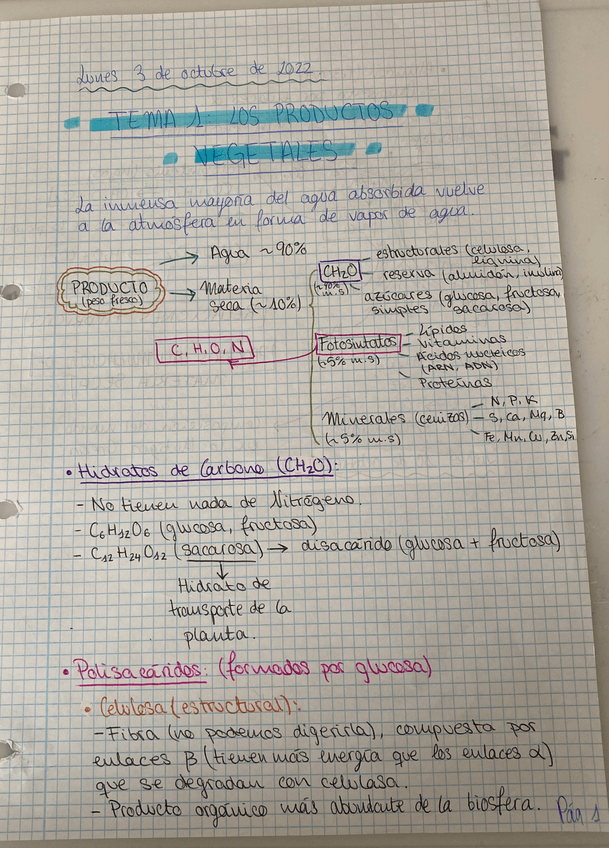 Lunes 3 de octubre de 2022.
TEMA 1: LOS PRODUCTOS
VEGETALES
La inmensa mayoría del agua absorbida vuelve
a la atmósfera en forma de vapor de agua.
PRODUCTO
(peso fresco)
Agua ~90%
Materia
seca (~10%)
CH₂O
(~90%
m.s)
estructurales (celulosa,
lignina)
reserva (almidón, inulina)
azúcares (glucosa, fructosa,
simples sacarosa)
C, H, O, N
Fotosintatos
(~5% m.s)
Lípidos
Vitaminas
Ácidos nucleicos
(ARN, ADN)
Proteínas
Minerales (cenizas)
(~5% m.s)
N, P, K
S, Ca, Mg, B
Fe, Mn, Cu, Zn, Si
• Hidratos de Carbono (CH₂O):
- No tienen nada de Nitrógeno.
- C₆H₁₂O₆ (glucosa, fructosa)
- C₁₂H₂₄O₁₂ (sacarosa) → disacárido (glucosa + fructosa)
↓
Hidrato de
transporte de la
planta.
• Polisacáridos: (formados por glucosa)
• Celulosa (estructural):
- Fibra (no podemos digerirla), compuesta por
enlaces β (tienen más energía que los enlaces α)
que se degradan con celulasa.
- Producto orgánico más abundante de la biosfera.
Pág 1